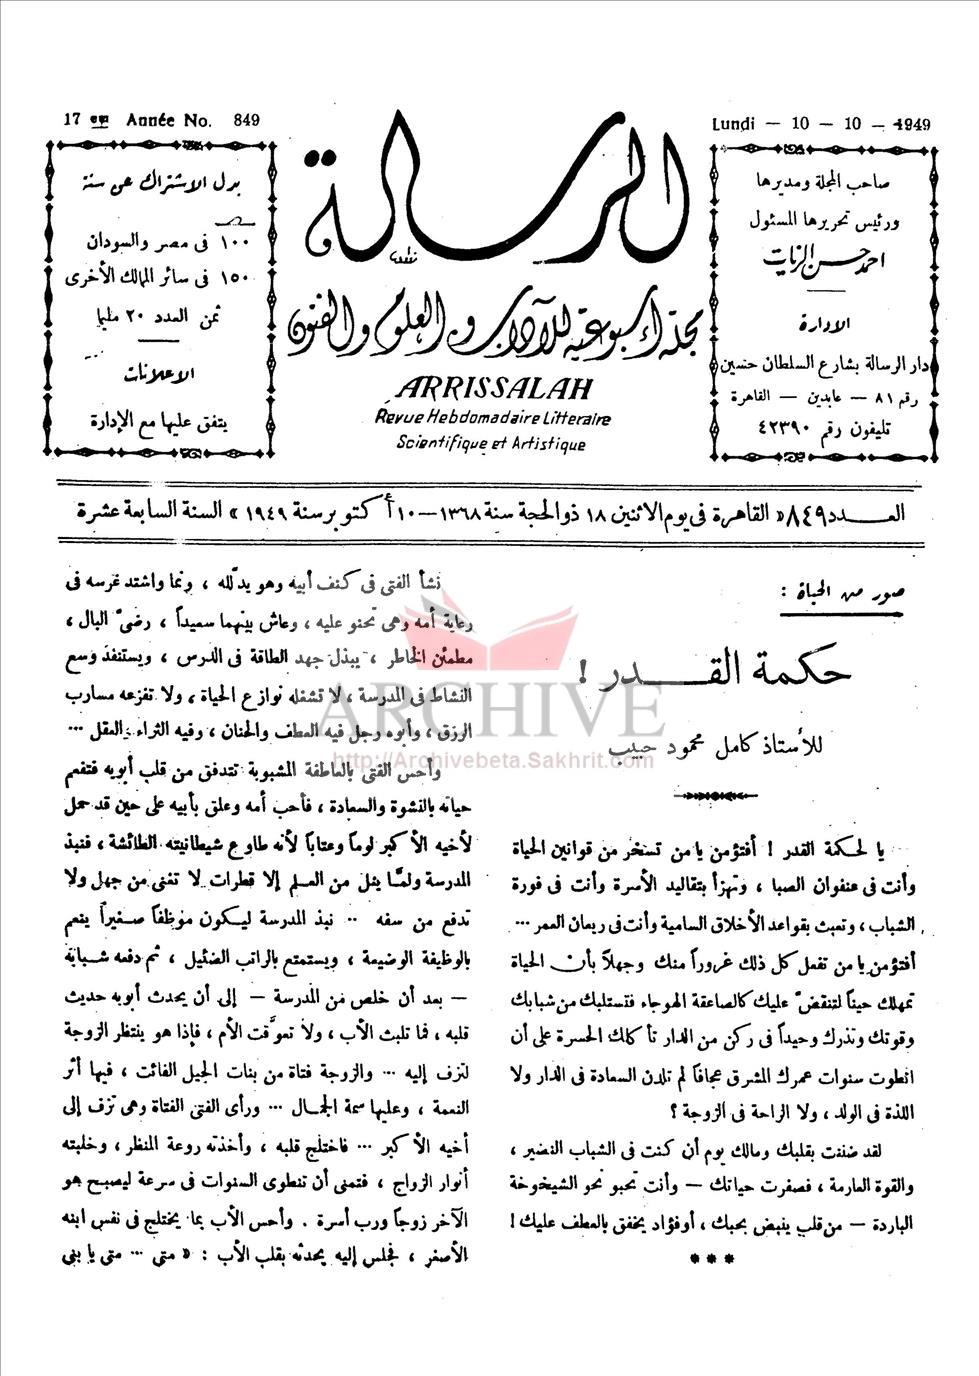 17 me Année No. 849
Lundi - 10 - 10 - 1949
صاحب المجلة ومديرها
ورئيس تحريرها المسئول
احمد حسن الزيات
الادارة
دار الرسالة بشارع السلطان حسين
رقم ٨١ — عابدين — القاهرة
تليفون رقم ٤٢٣٩٠
الرسالة
مجلة أسبوعية للآداب والعلوم والفنون
ARRISSALAH
Revue Hebdomadaire Litteraire
Scientifique et Artistique
بدل الاشتراك عن سنة
١٠٠ فى مصر والسودان
١٥٠ فى سائر الممالك الأخرى
ثمن العدد ٢٠ مليما
الاعلانات
يتفق عليها مع الإدارة
العـــدد ٨٤٩ « القاهرة فى يوم الاثنين ١٨ ذو الحجة سنة ١٣٦٨ — ١٠ أكتوبر سنة ١٩٤٩ » السنة السابعة عشرة
صور من الحياة :
حكمة القــــدر !
للأستاذ كامل محمود حبيب
يا لحكمة القدر ! أفتؤمن يا من تسخر من قوانين الحياة
وأنت فى عنفوان الصبا ، وتهزأ بتقاليد الأسرة وأنت فى فورة
الشباب ، وتعبث بقواعد الأخلاق السامية وأنت فى ريعان العمر ...
أفتؤمن يا من تفعل كل ذلك غروراً منك وجهلاً بأن الحياة
تمهلك حيناً لتنقضّ عليك كالصاعقة الهوجاء فتستلبك من شبابك
وقوتك وتذرك وحيداً فى ركن من الدار تأكلك الحسرة على أن
انطوت سنوات عمرك المشرق عجافاً لم تلدن السعادة فى الدار ولا
اللذة فى الولد ، ولا الراحة فى الزوجة ؟
لقد ضننت بقلبك ومالك يوم أن كنت فى الشباب النضير ،
والقوة العارمة ، فصفرت حياتك — وأنت تحبو نحو الشيخوخة
الباردة — من قلب ينبض بحبك ، أو فؤاد يخفق بالعطف عليك !
* * *
نشأ الفتى فى كنف أبيه وهو يدلّله ، ونما واشتد غرسه فى
رعاية أمه وهى تحنو عليه ، وعاش بينهما سعيداً ، رضىّ البال ،
مطمئن الخاطر ، يبذل جهد الطاقة فى الدرس ، ويستنفد وسع
النشاط فى المدرسة ، لا تشغله نوازع الحياة ، ولا تفزعه مسارب
الرزق ، وأبوه رجل فيه العطف والحنان ، وفيه الثراء والعقل ...
وأحس الفتى بالعاطفة المشبوبة تتدفق من قلب أبويه فتفعم
حياته بالنشوة والسعادة ، فأحب أمه وعلق بأبيه على حين قد حمل
لأخيه الأكبر لوماً وعتاباً لأنه طاوع شيطانيته الطائشة ، فنبذ
المدرسة ولمّا ينل من العلم إلا قطرات لا تغنى من جهل ولا
تدفع من سفه ... نبذ المدرسة ليكون موظفاً صغيراً ينعم
بالوظيفة الوضيعة ، ويستمتع بالراتب الضئيل ، ثم دفعه شبابه
— بعد أن خلص من المدرسة — إلى أن يحدث أبويه حديث
قلبه ، فما تلبث الأب ، ولا تعوّقت الأم ، فإذا هو ينتظر الزوجة
لتزف إليه ... والزوجة فتاة من بنات الجيل الفائت ، فيها أثر
النعمة ، وعليها سمة الجمال ... ورأى الفتى الفتاة وهى تزف إلى
أخيه الأكبر ... فاختلج قلبه ، وأخذته روعة المنظر ، وخلبته
أنوار الزواج ، فتمنى أن تنطوى السنوات فى سرعة ليصبح هو
الآخر زوجاً ورب أسرة . وأحس الأب بما يختلج فى نفس ابنه
الأصغر ، فجلس إليه يحدثه بقلب الأب : « متى ... متى يا بنى
ARCHIVE
http://Archivebeta.Sakhrit.com